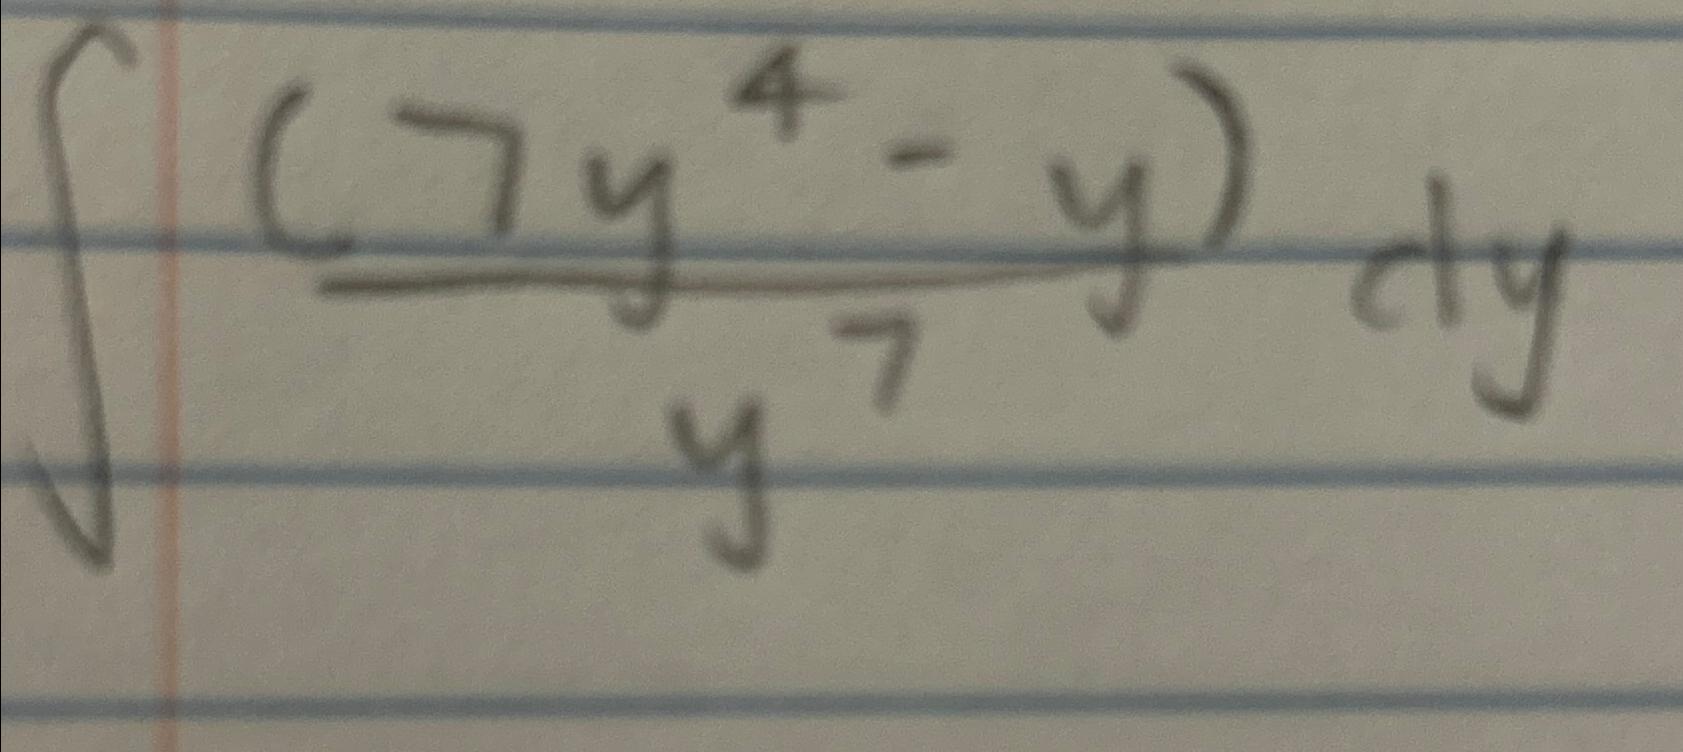 ∫ (7y⁴ - y) / y⁷ dy